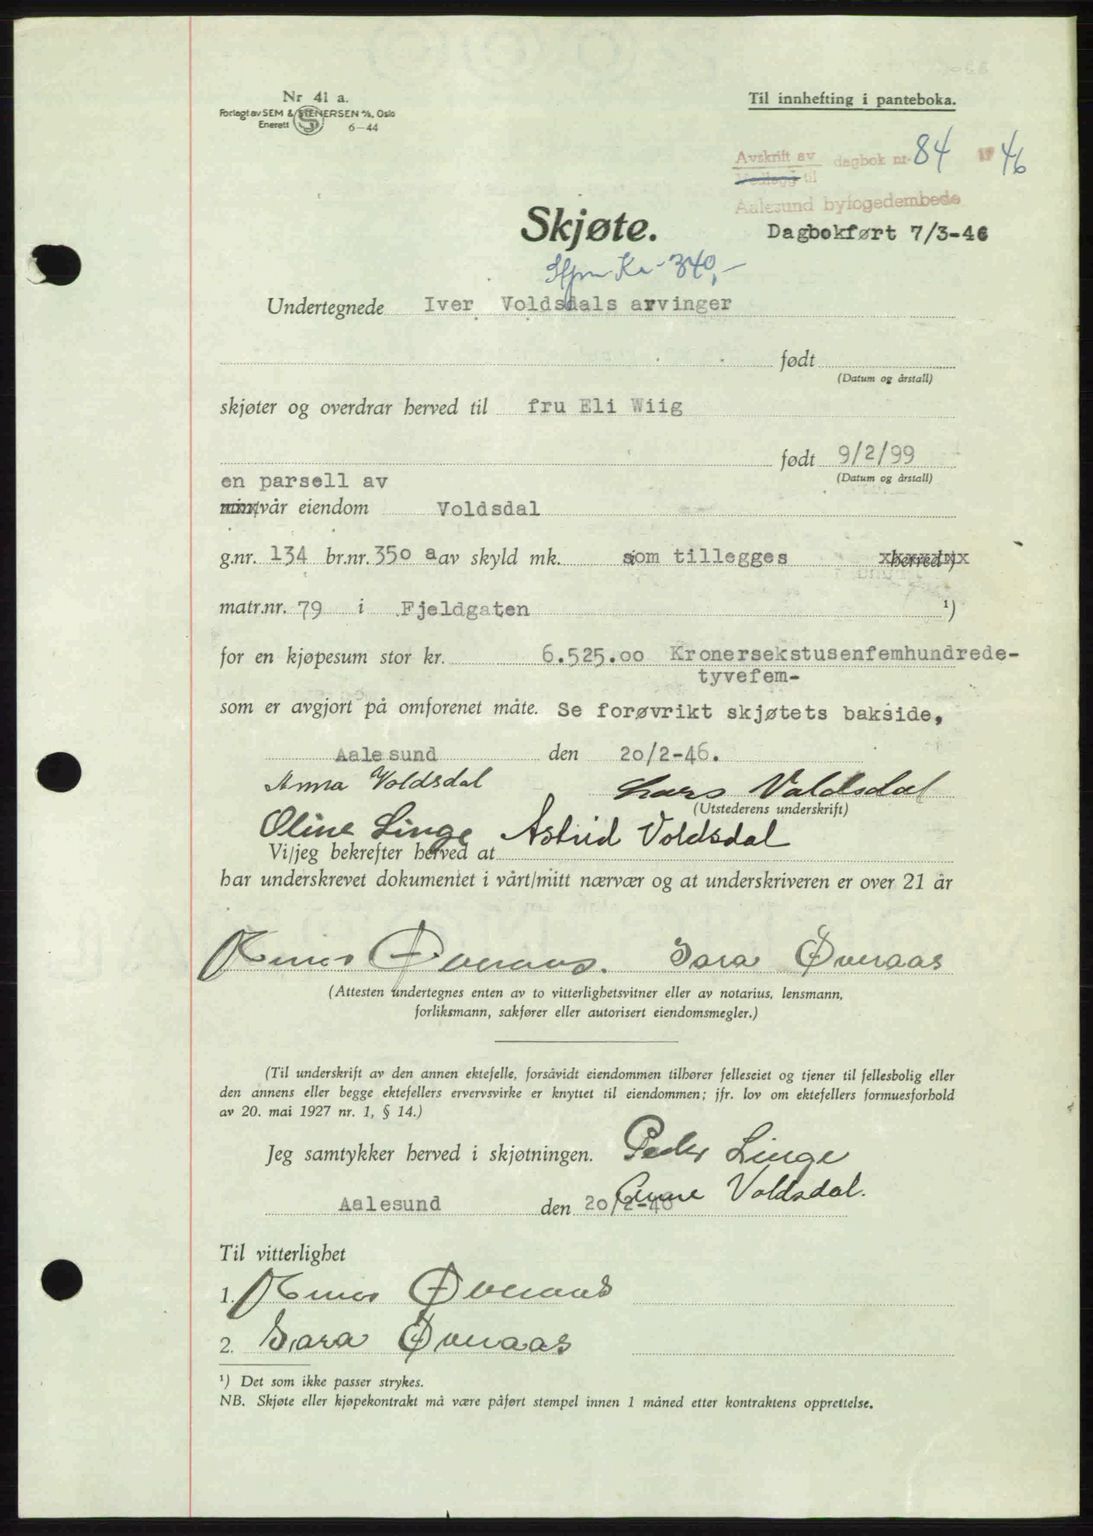 Nr 41 a.
Forlagt av SEM & STENERSEN A/S, Oslo
Enerett 6-44
Til innhefting i panteboka.
Avskrift av dagbok nr. 84 19 46
Vedlegg til
Aalesund byfogedembede
Skjøte.
Dagbokført 7/3-46
Kr 340,-
Undertegnede Iver Voldsdals arvinger
født
(Datum og årstall)
skjøter og overdrar herved til fru Eli Wiig
født 9/2/99
(Datum og årstall)
en parsell av
min/vår eiendom Voldsdal
g.nr. 134 br.nr. 350 a av skyld mk. som tillegges herred ¹)
matr.nr. 79 i Fjeldgaten ¹)
for en kjøpesum stor kr. 6.525.00 Kronersekstusenfemhundrede-
tyvefem-
som er avgjort på omforenet måte. Se forøvrikt skjøtets bakside,
Aalesund den 20/2-46.
Anna Voldsdal Lars Voldsdal
(Utstederens underskrift)
Oline Linge Astrid Voldsdal
Vi/jeg bekrefter herved at
har underskrevet dokumentet i vårt/mitt nærvær og at underskriveren er over 21 år
Øveraas. Sara Øveraas
(Attesten undertegnes enten av to vitterlighetsvitner eller av notarius, lensmann,
forliksmann, sakfører eller autorisert eiendomsmegler.)
(Til underskrift av den annen ektefelle, forsåvidt eiendommen tilhører felleseiet og tjener til fellesbolig eller
den annens eller begge ektefellers ervervsvirke er knyttet til eiendommen; jfr. lov om ektefellers formuesforhold
av 20. mai 1927 nr. 1, § 14.)
Jeg samtykker herved i skjøtningen. Peder Linge
Anne Voldsdal.
Aalesund den 20/2-46
Til vitterlighet
1. Øveraas
2. Sara Øveraas
¹) Det som ikke passer strykes.
NB. Skjøte eller kjøpekontrakt må være påført stempel innen 1 måned etter kontraktens opprettelse.